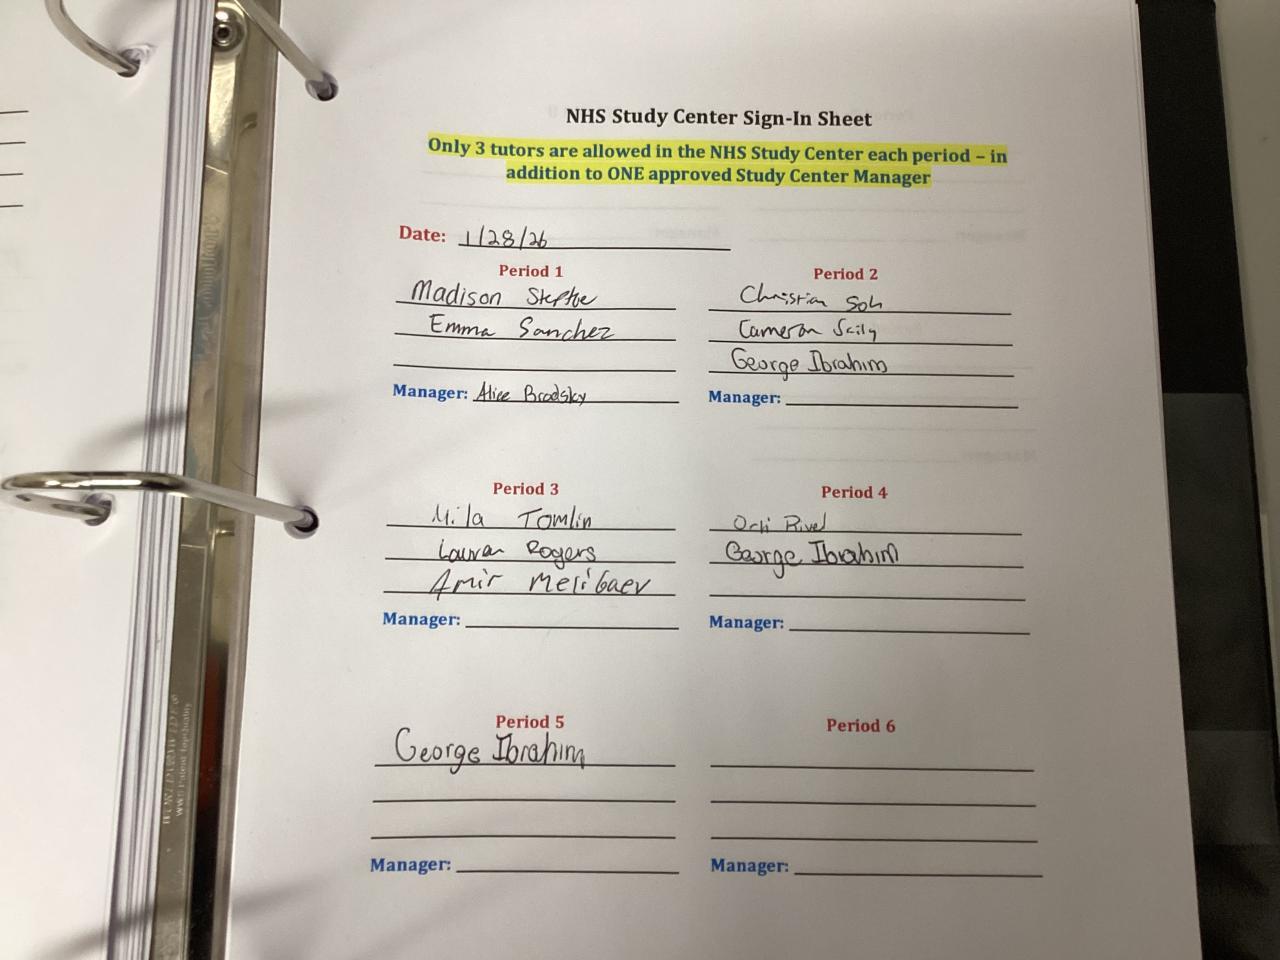 NHS Study Center Sign-In Sheet
Only 3 tutors are allowed in the NHS Study Center each period – in
addition to ONE approved Study Center Manager
Date: 1/28/26
Period 1
Madison Steptoe
Emma Sanchez
Manager: Alice Brodsky
Period 2
Christian Soh
Cameron
George Ibrahim
Manager:
Period 3
Mila Tomlin
Lauren Rogers
Amir Melibaev
Manager:
Period 4
George Ibrahim
Manager:
Period 5
George Ibrahim
Manager:
Period 6
Manager: